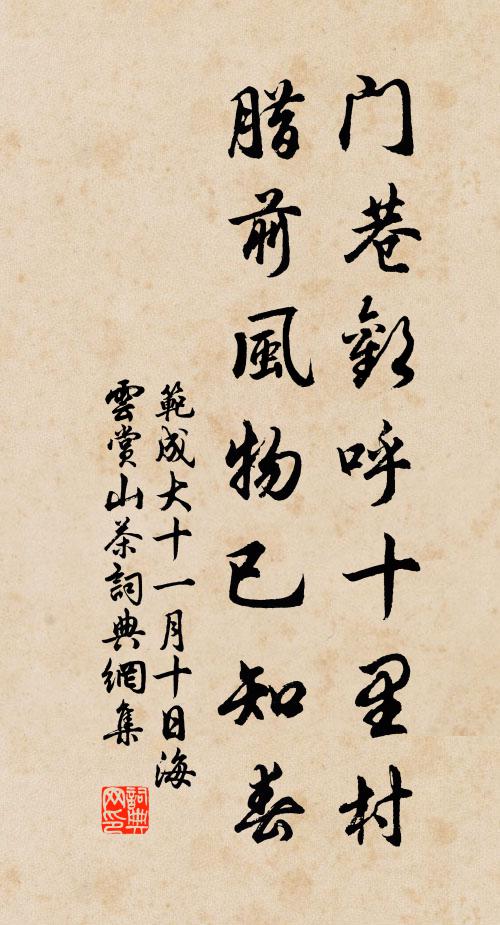 门巷歡呼十里村
腊前風物已知春
範成大十一月十日海
雲賞山茶詞典網集
詞典
网印